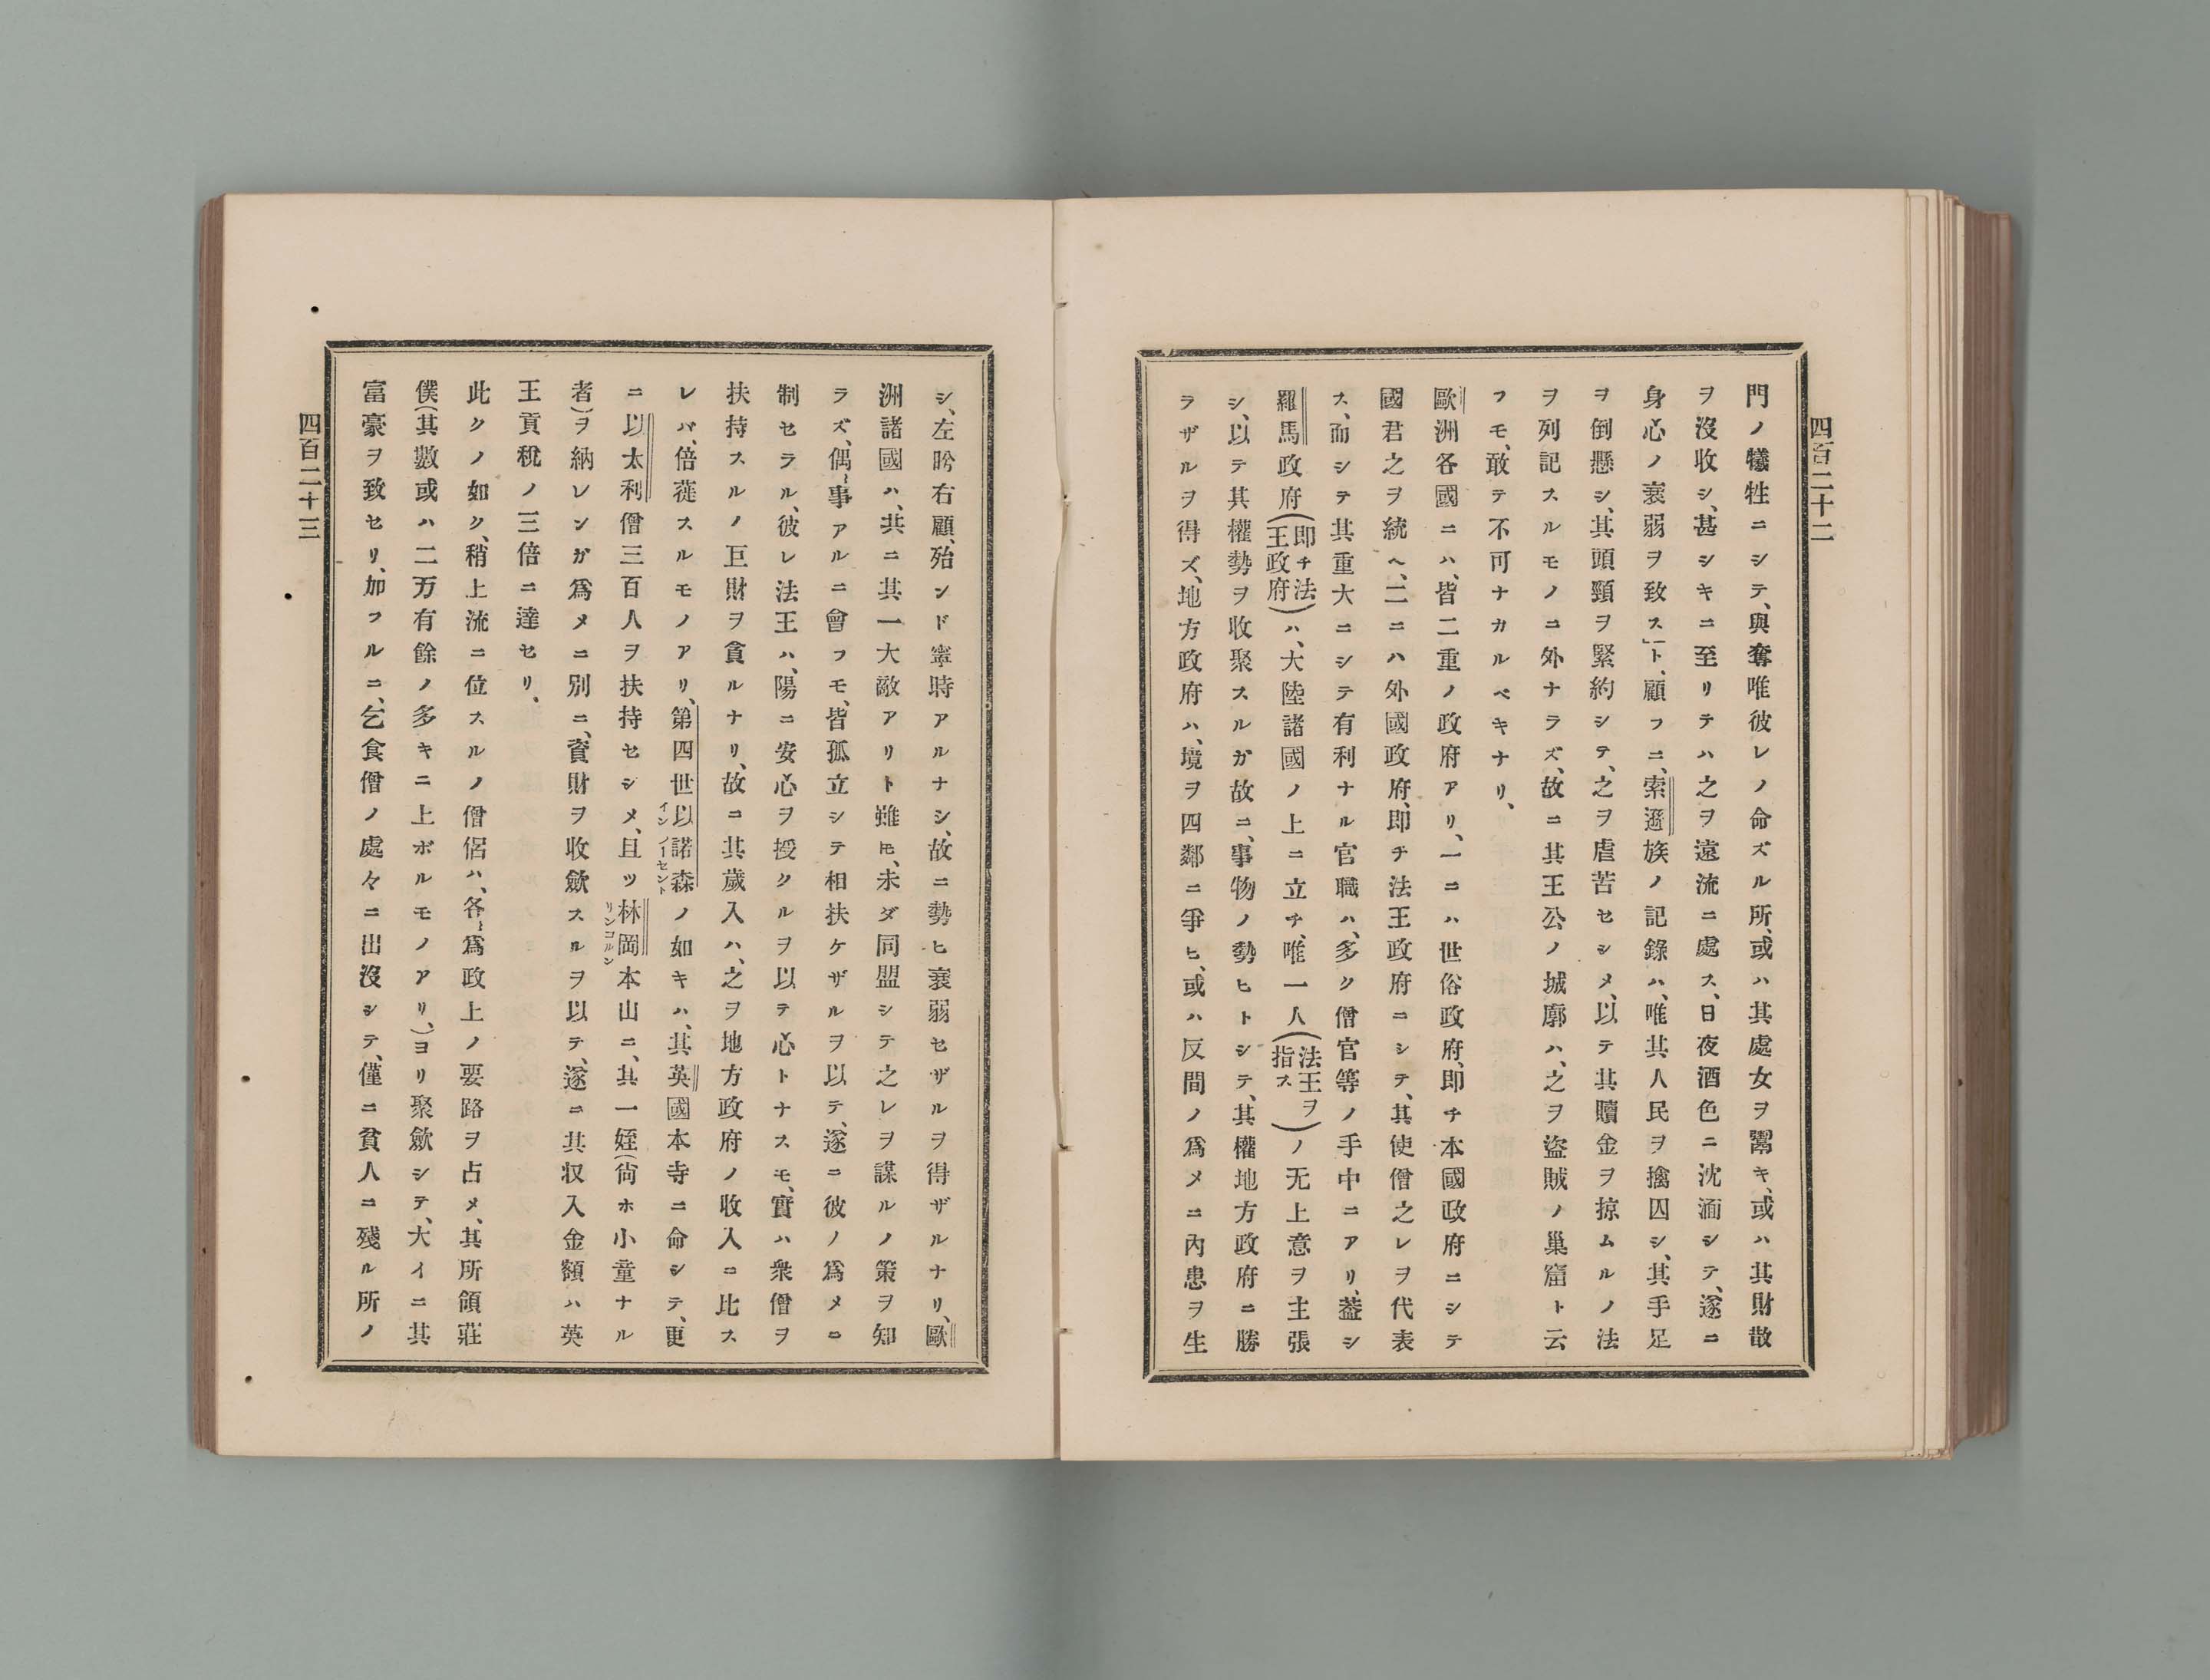 四百二十二
門ノ犧牲ニシテ、與奪唯彼レノ命ズル所、或ハ其處女ヲ鬻キ、或ハ其財散
ヲ沒收シ、甚シキニ至リテハ之ヲ遠流ニ處ス、日夜酒色ニ沈湎シテ、遂ニ
身心ノ衰弱ヲ致ス」ト、顧フニ、索遜族ノ記錄ハ、唯其人民ヲ擒囚シ、其手足
ヲ倒懸シ、其頭頸ヲ緊約シテ、之ヲ虐苦セシメ、以テ其贖金ヲ掠ムルノ法
ヲ列記スルモノニ外ナラズ、故ニ其王公ノ城廓ハ、之ヲ盜賊ノ巢窟ト云
フモ、敢テ不可ナカルベキナリ、
歐洲各國ニハ、皆二重ノ政府アリ、一ニハ世俗政府、即チ本國政府ニシテ
國君之ヲ統ヘ、二ニハ外國政府、即チ法王政府ニシテ、其使僧之レヲ代表
ス、而シテ其重大ニシテ有利ナル官職ハ、多ク僧官等ノ手中ニアリ、蓋シ
羅馬政府(即チ法王政府)ハ、大陸諸國ノ上ニ立チ、唯一人(法王ヲ指ス)ノ无上意ヲ主張
シ、以テ其權勢ヲ收聚スルガ故ニ、事物ノ勢ヒトシテ、其權地方政府ニ勝
ラザルヲ得ズ、地方政府ハ、境ヲ四鄰ニ爭ヒ、或ハ反間ノ爲メニ內患ヲ生
シ、左盻右顧、殆ンド寧時アルナシ、故ニ勢ヒ衰弱セザルヲ得ザルナリ、歐
洲諸國ハ、共ニ其一大敵アリト雖𪜈、未ダ同盟シテ之レヲ謀ルノ策ヲ知
ラズ、偶〻事アルニ會フモ、皆孤立シテ相扶ケザルヲ以テ、遂ニ彼ノ爲メニ
制セラル、彼レ法王ハ、陽ニ安心ヲ授クルヲ以テ心トナスモ、實ハ衆僧ヲ
扶持スルノ巨財ヲ貪ルナリ、故ニ其歲入ハ、之ヲ地方政府ノ收入ニ比ス
レバ、倍蓰スルモノアリ、第四世以諾森インノーセントノ如キハ、其英國本寺ニ命シテ、更
ニ以太利僧三百人ヲ扶持セシメ、且ツ林岡リンコルン本山ニ、其一姪(尙ホ小童ナル
者)ヲ納レンガ爲メニ別ニ、資財ヲ收斂スルヲ以テ、遂ニ其収入金額ハ英
王貢稅ノ三倍ニ達セリ、
此クノ如ク、稍上流ニ位スルノ僧侶ハ、各〻爲政上ノ要路ヲ占メ、其所領莊
僕(其數或ハ二万有餘ノ多キニ上ボルモノアリ、)ヨリ聚斂シテ、大イニ其
富豪ヲ致セリ、加フルニ、乞食僧ノ處々ニ出沒シテ、僅ニ貧人ニ殘ル所ノ
四百二十三